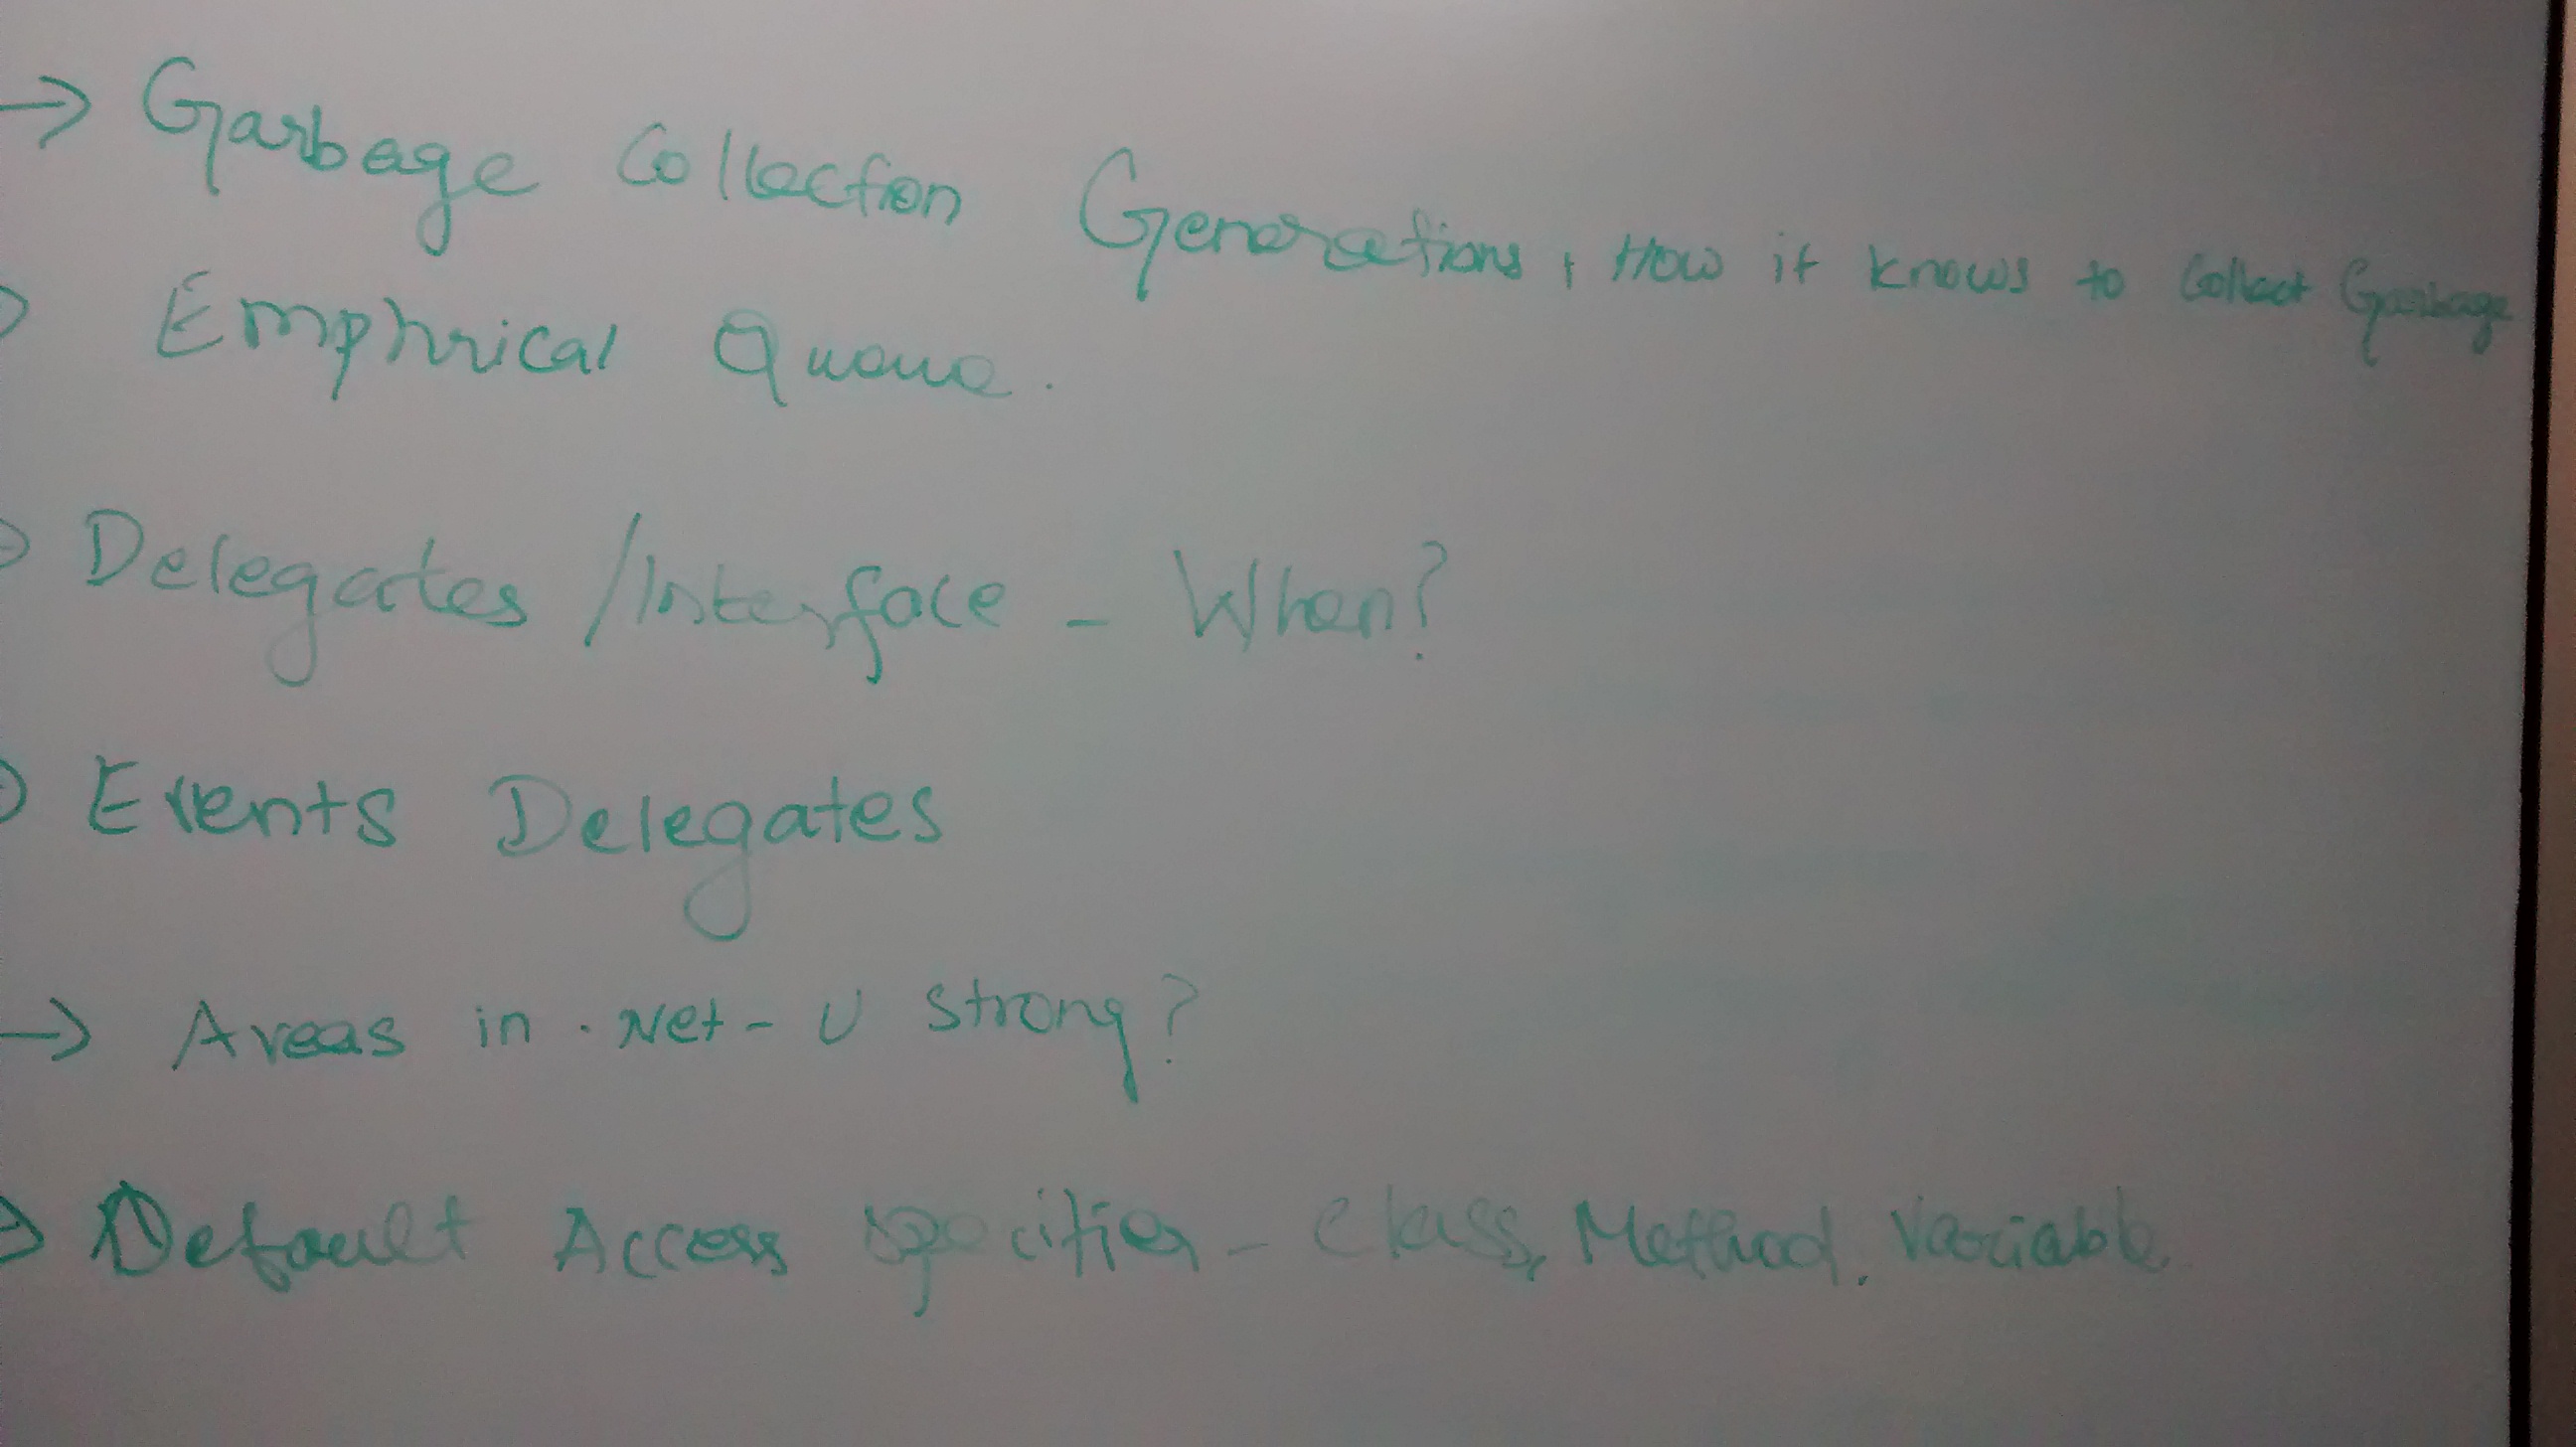 → Garbage Collection Generations, How it knows to Collect Garbage
→ Emphrical Queue.
→ Delegates /Interface - When?
→ Events Delegates
→ Areas in .Net - U strong?
→ Default Access specifier - class, Method, Variable